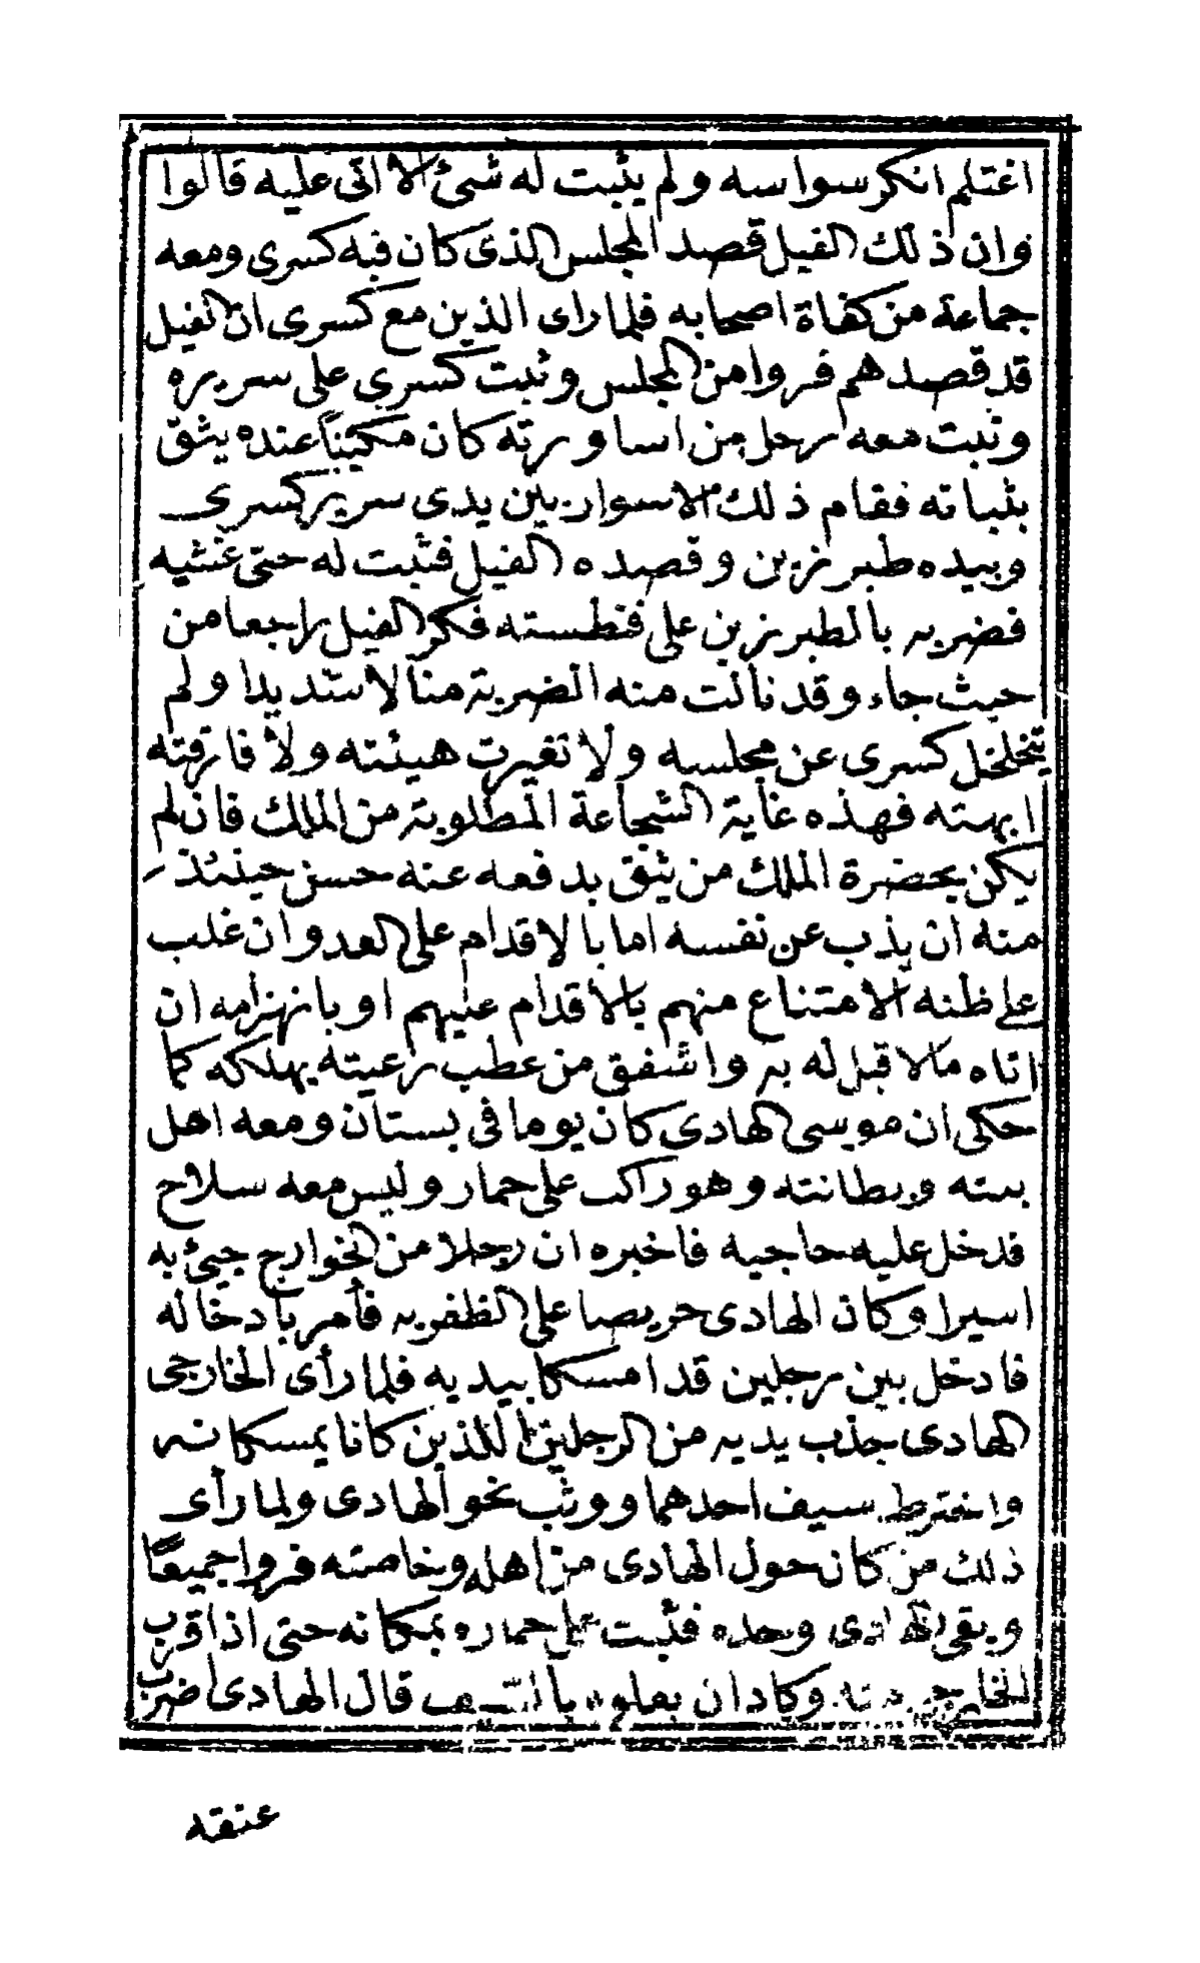 اغتلم انكر سواسه ولم يثبت له شئ الا اتى عليه قالوا
وان ذلك الفيل قصد المجلس الذى كان فيه كسرى ومعه
جماعة من كفاة اصحابه فلما راى الذين مع كسرى ان الفيل
قد قصدهم فروا من المجلس وثبت كسرى على سريره
وثبت معه رجل من اساورته كان مكينا عنده يثق
بثباته فقام ذلك الاسوار بين يدى سرير كسرى
وبيده طبرزين وقصده الفيل فثبت له حتى غشيه
فضربه بالطبرزين على فنطسته فكر الفيل راجعا من
حيث جاء وقد نالت منه الضربة منالا شديدا ولم
يتخلخل كسرى عن مجلسه ولا تغيرت هيئته ولا فارقته
ابهته فهذه غاية الشجاعة المطلوبة من الملك فان لم
يكن بحضرة الملك من يثق بدفعه عنه حسن حينئذ
منه ان يذب عن نفسه اما بالاقدام على العدو وان غلب
على ظنه الامتناع منهم بالاقدام عليهم او بانهزامه ان
اتاه مالا قبل له به واشفق من عطب رعيته بهلكه كما
حكى ان موسى الهادى كان يوما فى بستان ومعه اهل
بيته وبطانته وهو راكب على حمار وليس معه سلاح
فدخل عليه حاجبه فاخبره ان رجلا من الخوارج جيئ به
اسيرا وكان الهادى حريصا على الظفر به فأمر بادخاله
فادخل بين رجلين قد امسكا بيديه فلما رأى الخارجى
الهادى جذب يديه من الرجلين اللذين كانا يمسكانه
واخترط سيف احدهما ووثب نحو الهادى ولما رأى
ذلك من كان حول الهادى من اهله وخاصته فروا جميعًا
وبقى الهادى وحده فثبت على حماره بمكانه حتى اذا قرب
الخارجى منه وكاد ان يعلوه بالسيف قال الهادى اضرب
عنقه